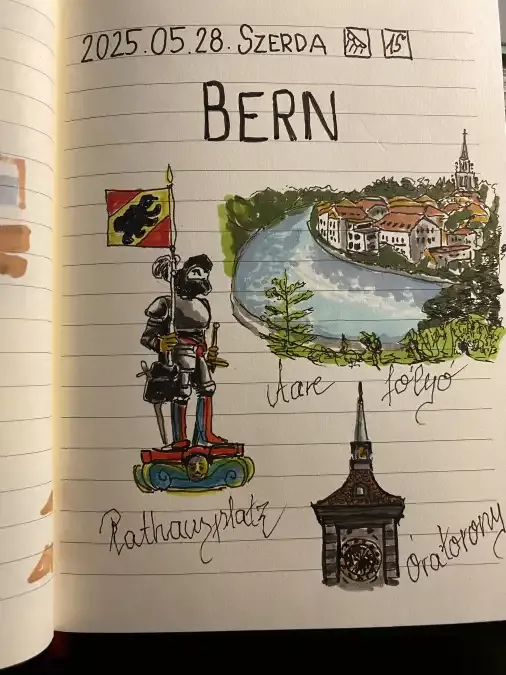 2025.05.28. SZERDA 15°
BERN
Aare folyó
Rathausplatz
Óratorony